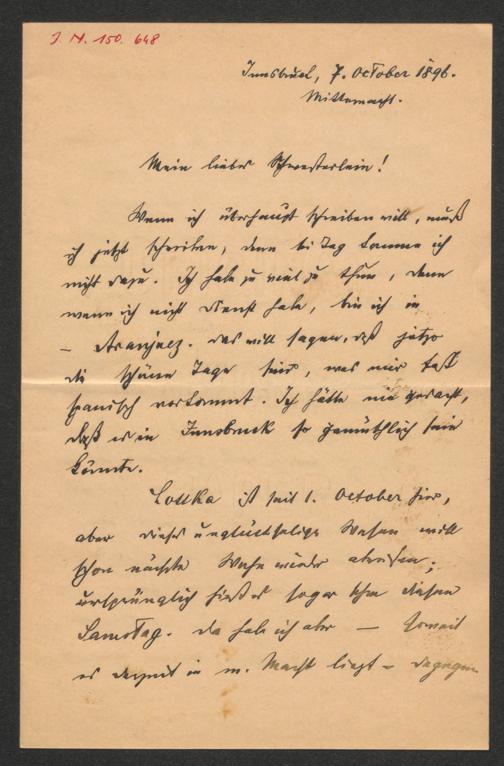 J. N. 150. 648
Innsbruck, 7. October 1896.
Mitternacht.
Mein liebes Schwesterlein!
Wenn ich überhaupt schreiben will, muß
ich jetzt schreiben, denn bei Tag komme ich
nicht dazu. Ich habe zu viel zu thun, denn
wenn ich nicht Dienst habe, bin ich in
– Aranjuez. Das will sagen, daß jetzo
die schönen Tage sind, was mir fast
spanisch vorkommt. Ich hätte nie gedacht,
daß es in Innsbruck so gemüthlich sein
könnte.
Lottka ist seit 1. October hier,
aber dieses unglückselige Wesen will
schon nächste Woche wieder abreisen;
ursprünglich hieß es sogar schon diesen
Samstag. Da habe ich aber – soweit
es derzeit in m. Macht liegt – dagegen